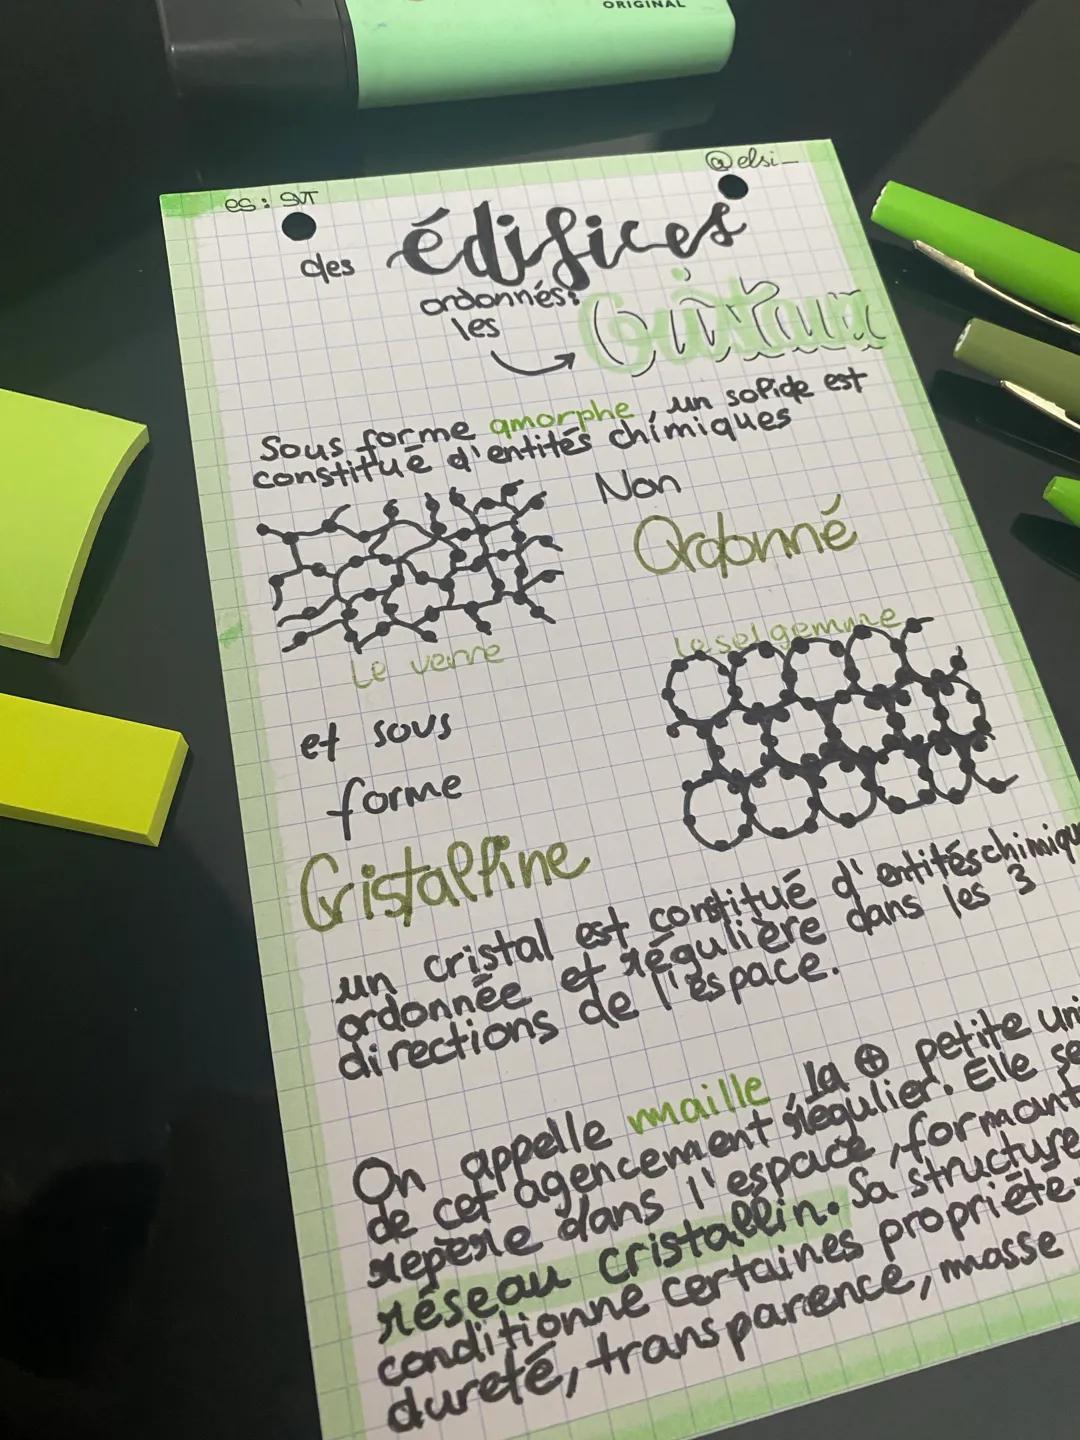 ORIGINAL
@elsi_
es: SVT
des édifices
ordonnés:
les
Cristaux
Sous forme amorphe, un solide est
constitué d'entités chimiques
Non
Ordonné
Le verre
Le sel gemme
et sous
forme
Cristalline
un cristal est constitué d'entités chimiqu
ordonnée et régulière dans les 3
directions de l'espace.
On appelle maille, la ⊕ petite uni
de cet agencement régulier. Elle se
repère dans l'espace, formant
réseau cristallin. Sa structure
conditionne certaines propriété
dureté, transparence, masse